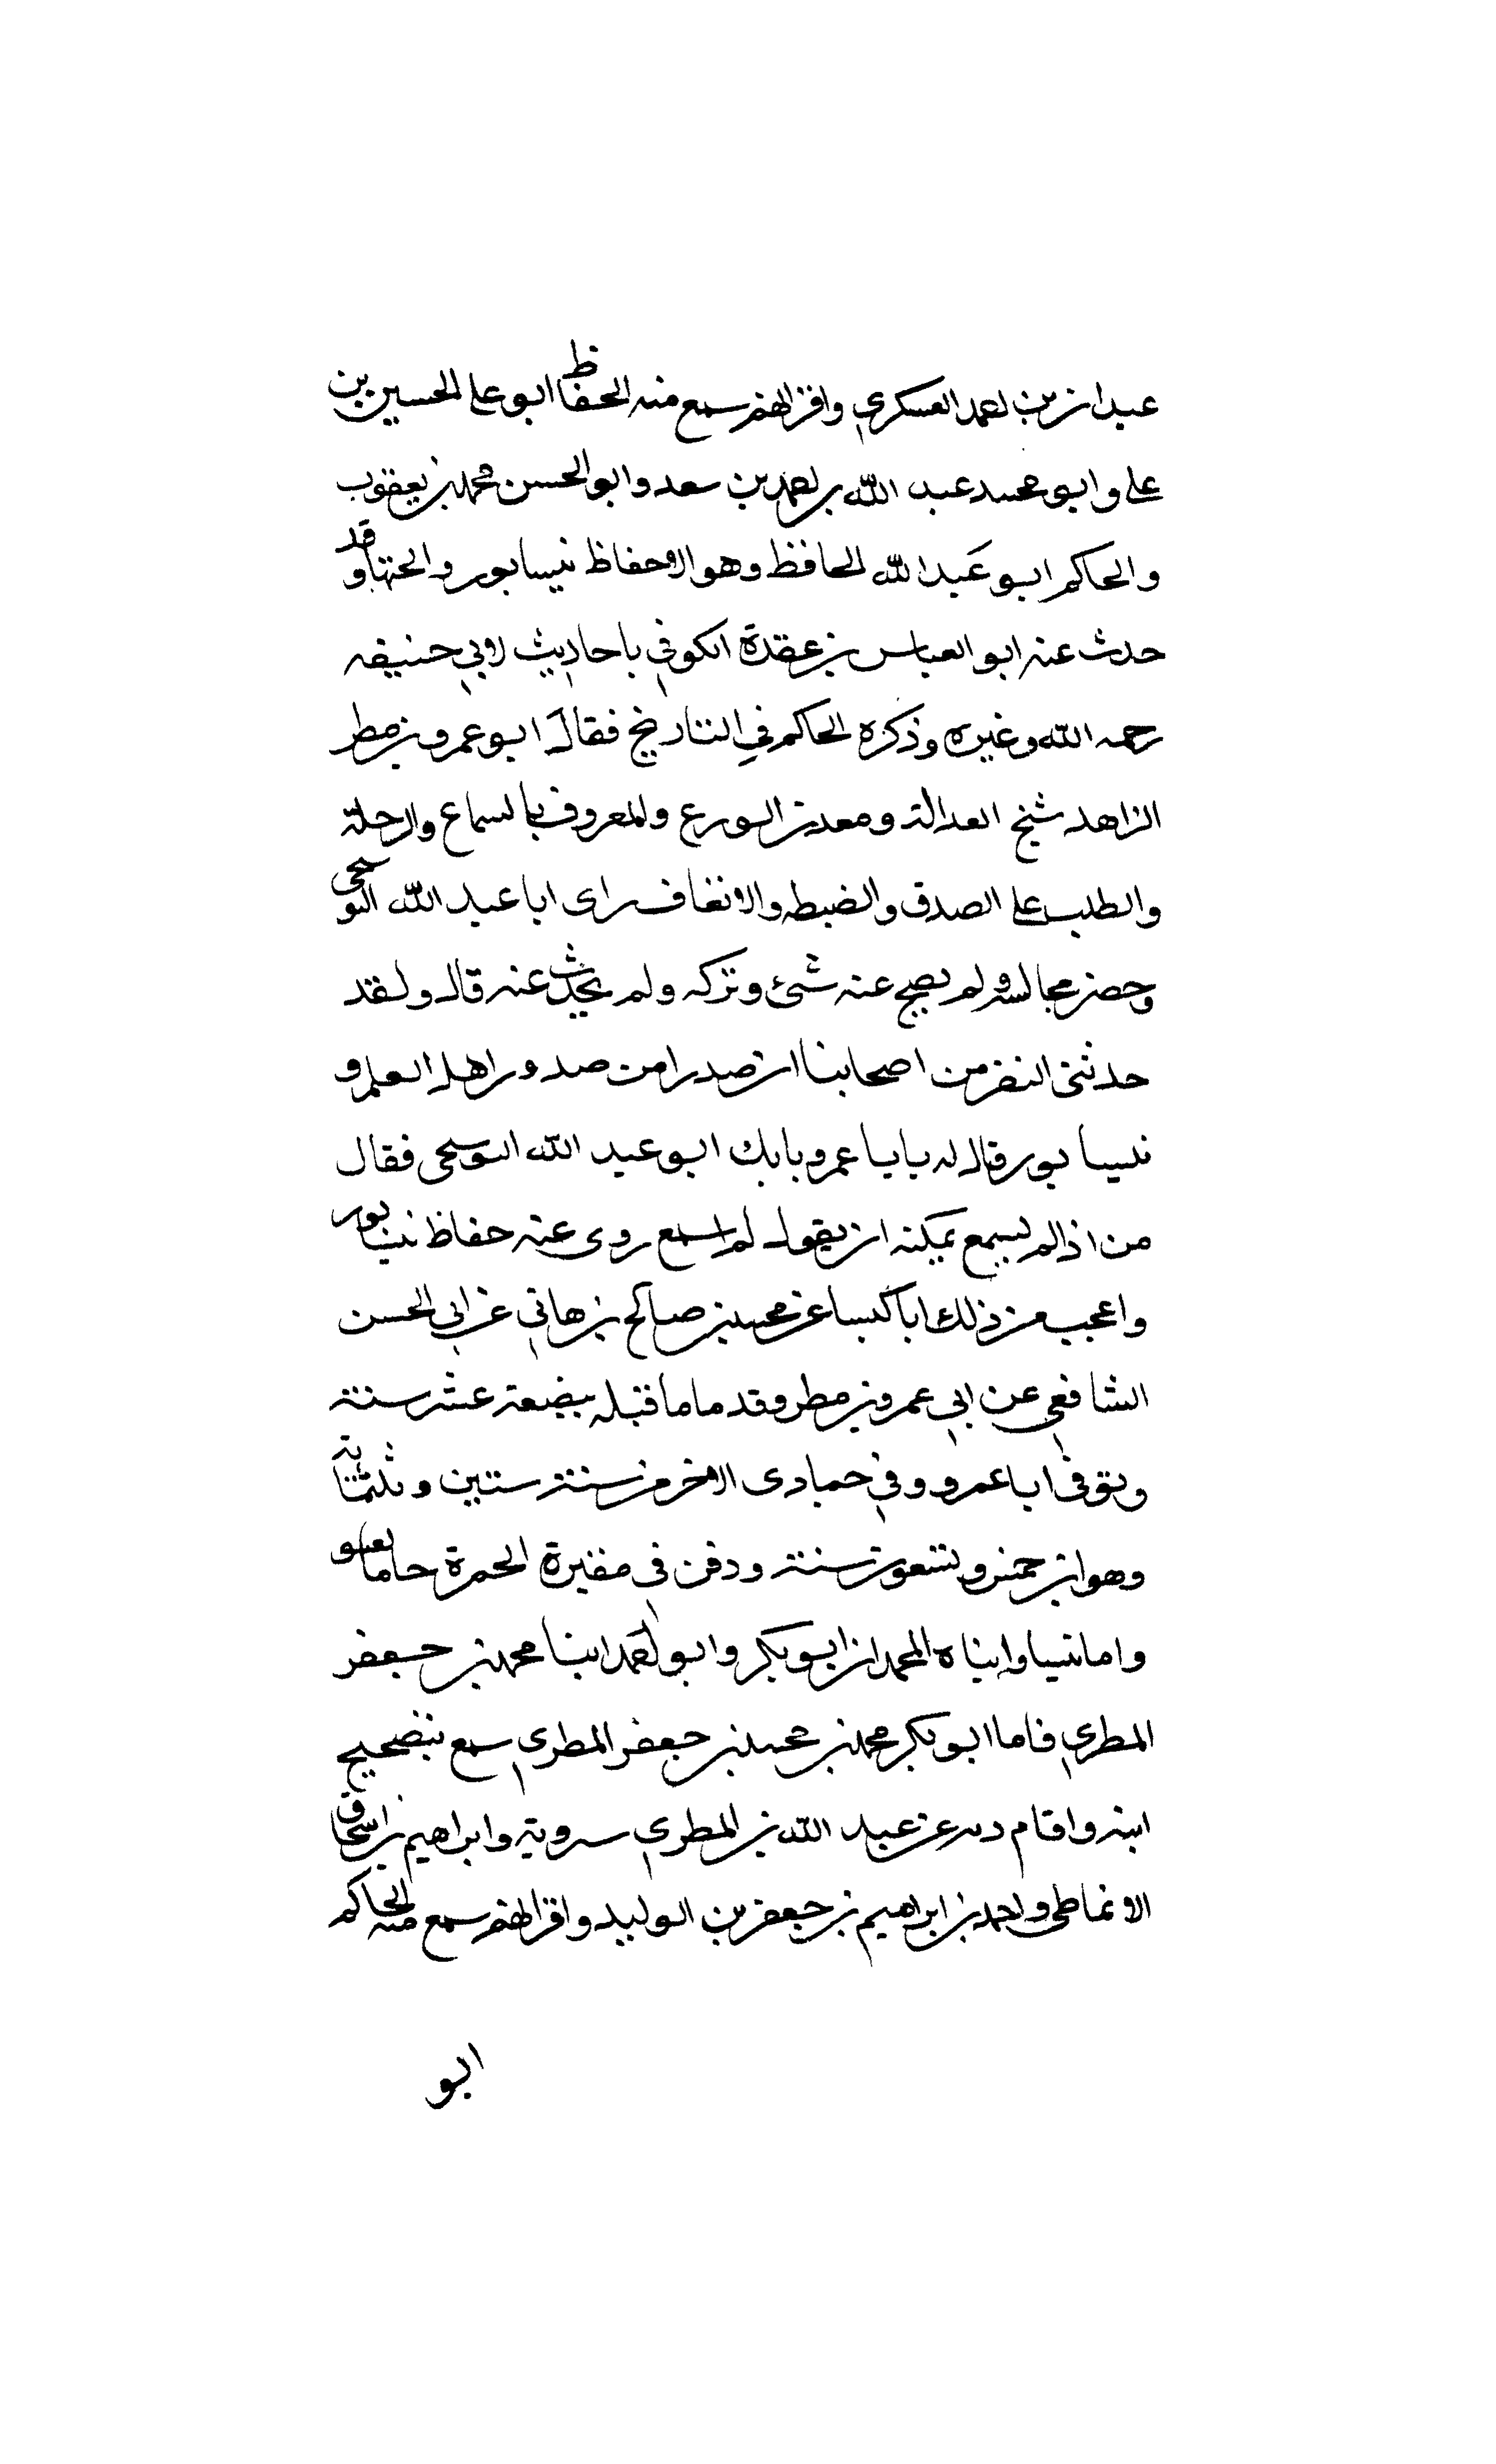 عبدان بن احمد العسكري واقرانهم سمع منه الحفاظ ابو على الحسين بن
على وابو محمد عبد الله بن احمد بن سعد وابو الحسن محمد بن يعقوب
والحاكم ابو عبد الله الحافظ وهولاء حفاظ نيسابور وقد
حدث عنه ابو العباس بن عقدة الكوفي باحاديث لابي حنيفه
رحمه الله وغيره وذكره الحاكم في التاريخ فقال ابو عمرو بن مطر
الزاهد شيخ العدالة ومعدن الورع والمعروف بالسماع والرحلة
والطلب على الصدق والضبط والاتقان راى ابا عبد الله البوسحى
وحضر مجالسه ولم يصح عنه شئ وتركه ولم يحدث عنه قال ولقد
حدثنى النفر من اصحابنا ان صدرا من صدور اهل العلم و
نيسابور قال له يابا عمرو بابك ابو عبد الله البوسحى فقال
من اذا لم يسمع يمكنه ان يقول لم اسمع روى عنه حفاظ نيسابور
واعجب من ذلك ابا كتبنا عن محمد بن صالح بن هاني عن ابي الحسن
الشافعي عن ابي عمرو بن مطر وقد ماما قبله ببضعة عشر سنة
وتوفى ابا عمرو وفي جمادى الاخر من سنة ستين وثلثمائة
وهو ابن خمس وتسعون سنة ودفن في مقبرة الحمرة
واما وابناه المحمدان ابو بكر وابو احمد ابنا محمد بن جعفر
المطري فاما ابو بكر محمد بن محمد بن جعفر المطري سمع بتصحيح
ابيه واقام عن عبد الله بن المطري سروية وابراهيم بن اسحاق
الانماطى واحمد بن ابراهيم بن جعفر بن الوليد واقرانهم سمع منه الحاكم
ابو